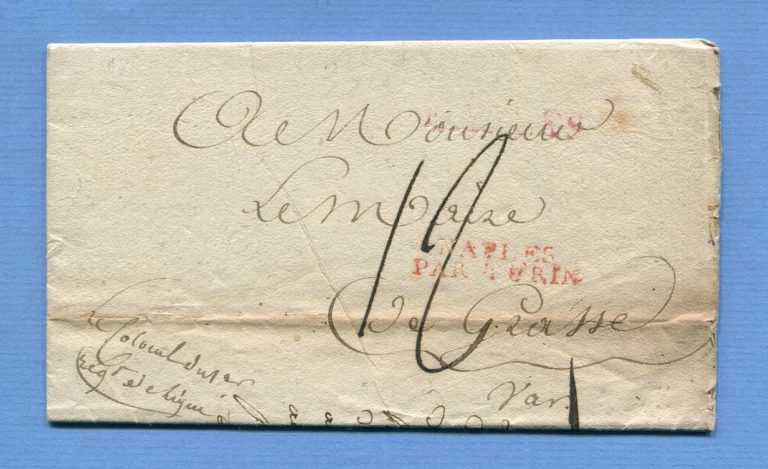 A Monsieur
Le Maire
NAPLES
PAR TURIN
de Grasse
Var.
Le Colonel du
regt de ligne